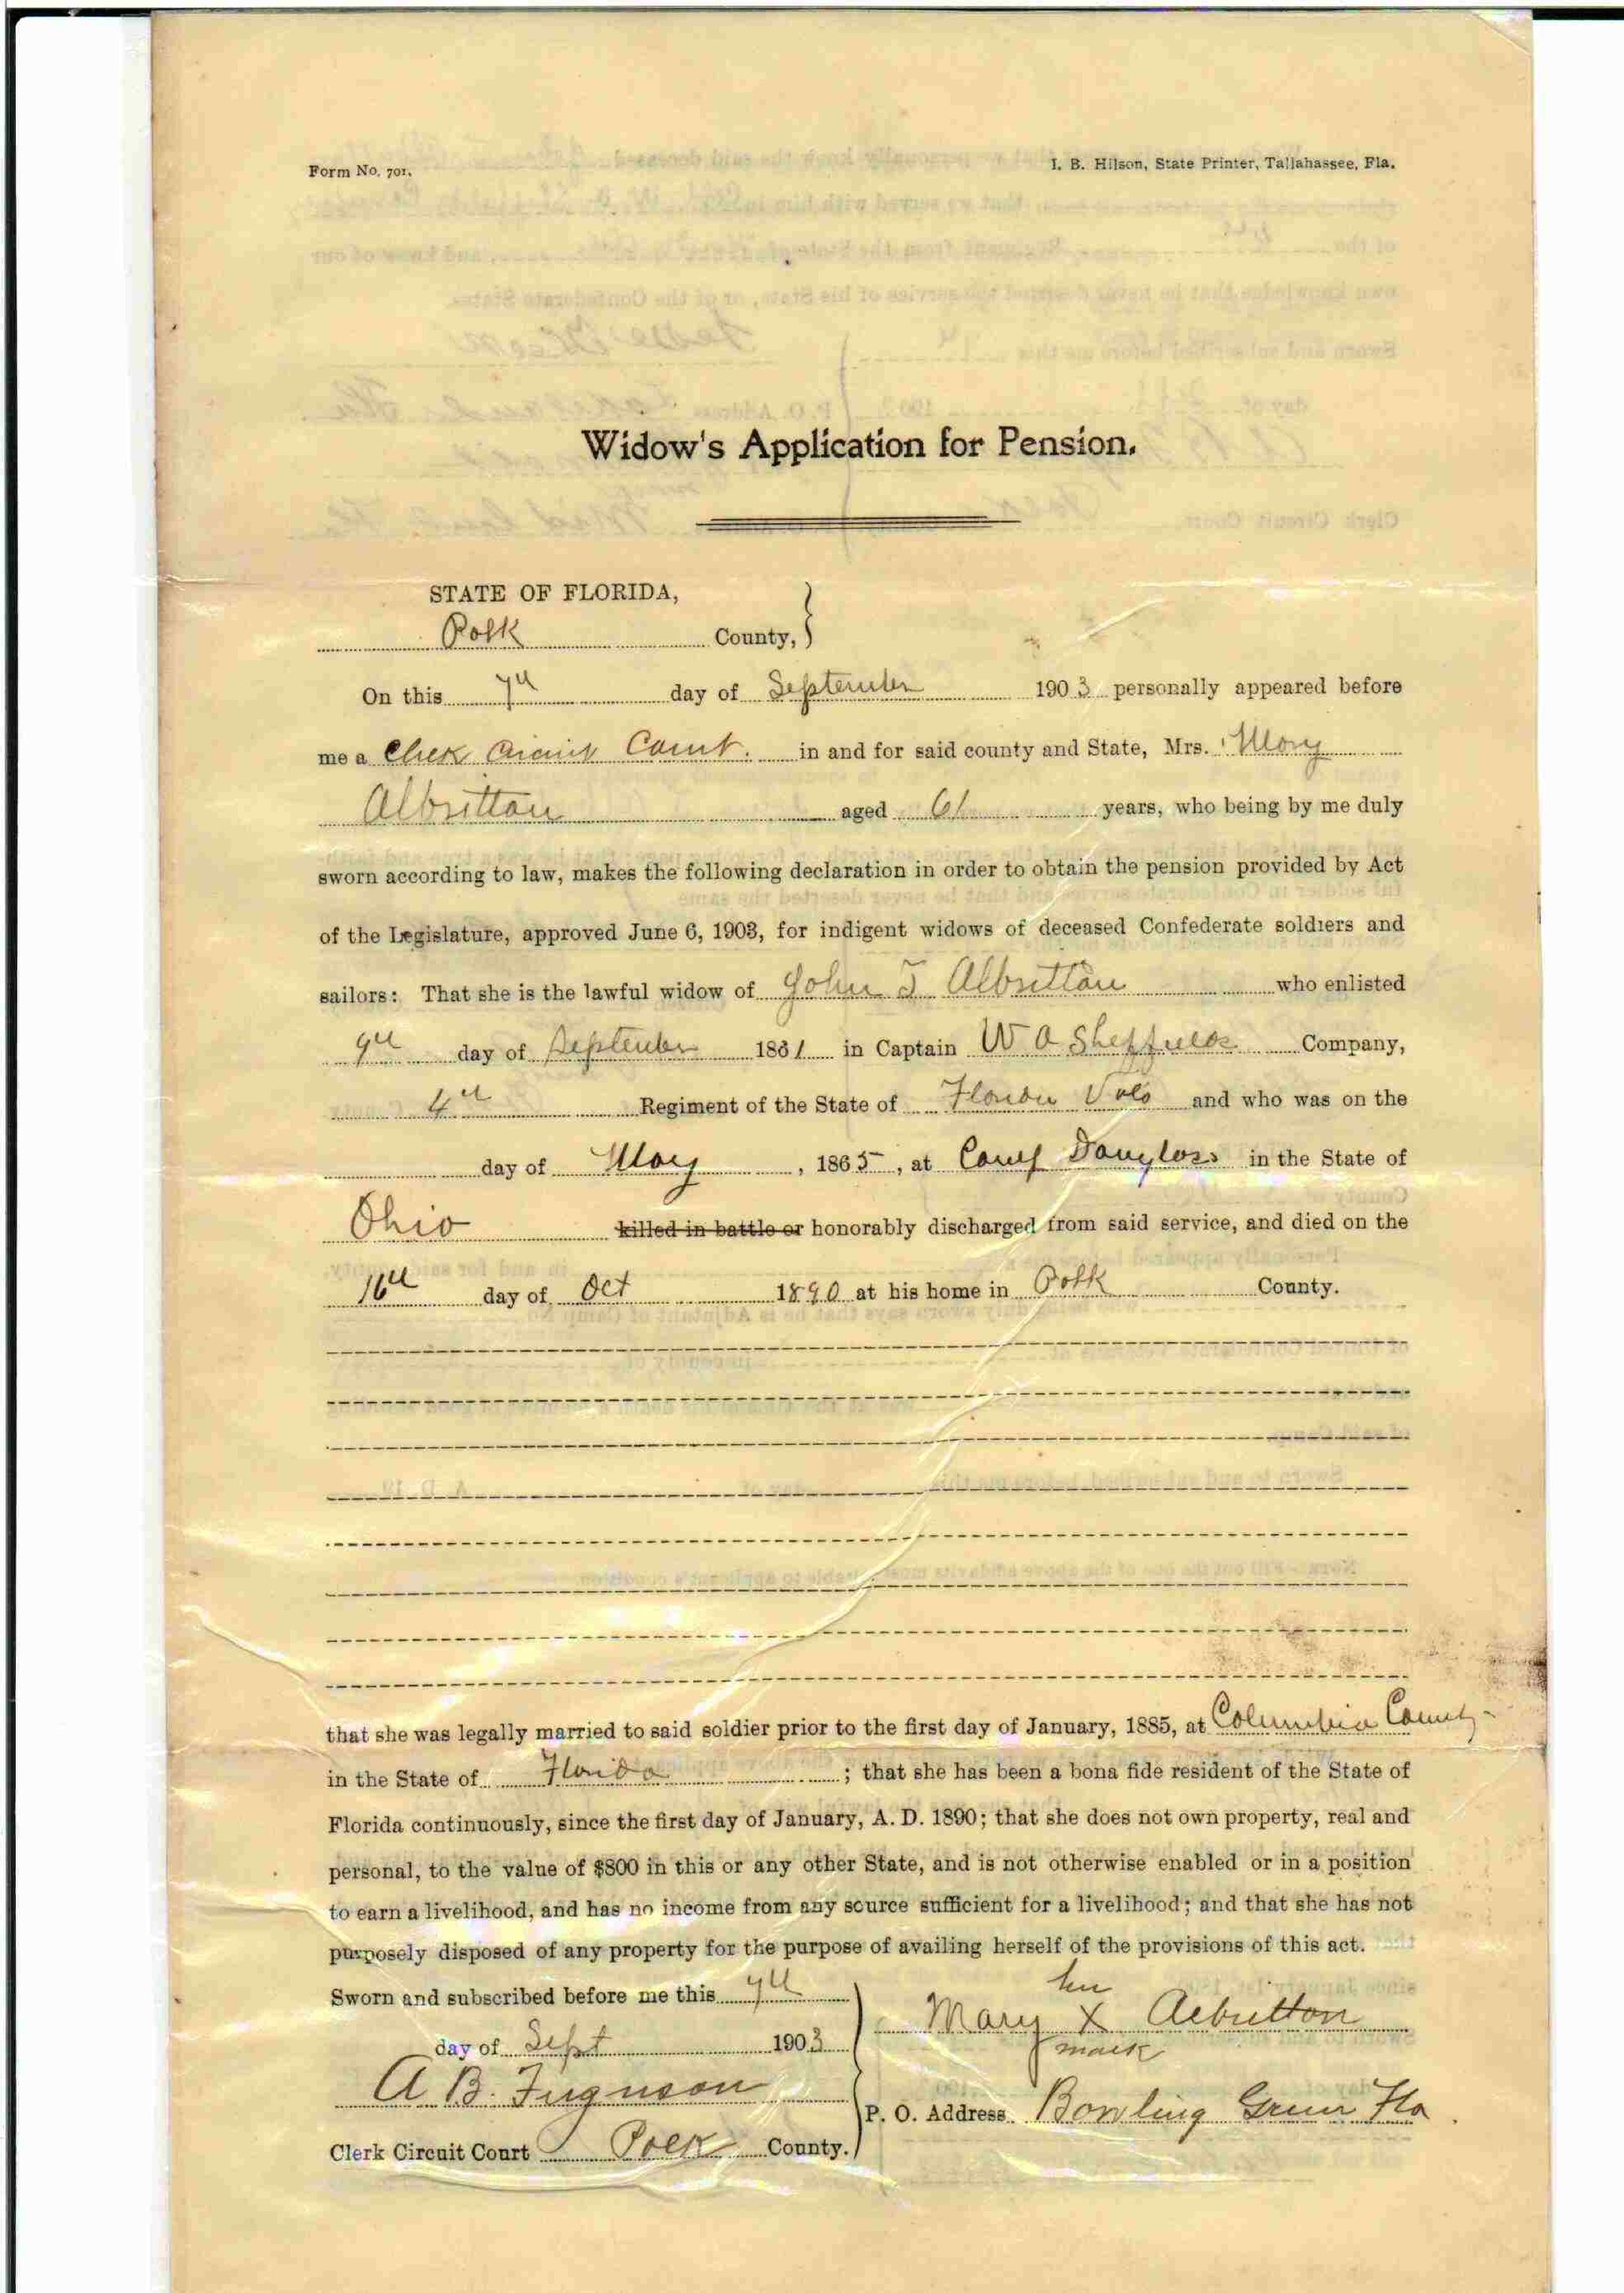 Form No. 701.
I. B. Hilson, State Printer, Tallahassee, Fla.
Widow's Application for Pension.
STATE OF FLORIDA,
Polk County,
On this 7th day of September 1903 personally appeared before
me a Clerk Circuit Court. in and for said county and State, Mrs. Mary
Albritton aged 61 years, who being by me duly
sworn according to law, makes the following declaration in order to obtain the pension provided by Act
of the Legislature, approved June 6, 1903, for indigent widows of deceased Confederate soldiers and
sailors: That she is the lawful widow of John T Albritton who enlisted
9th day of September 1861 in Captain W A Sheffields Company,
4th Regiment of the State of Florida Vols and who was on the
day of May, 1865, at Camp Douglass in the State of
Ohio killed in battle or honorably discharged from said service, and died on the
16th day of Oct 1890 at his home in Polk County.
that she was legally married to said soldier prior to the first day of January, 1885, at Columbia County
in the State of Florida; that she has been a bona fide resident of the State of
Florida continuously, since the first day of January, A. D. 1890; that she does not own property, real and
personal, to the value of $800 in this or any other State, and is not otherwise enabled or in a position
to earn a livelihood, and has no income from any source sufficient for a livelihood; and that she has not
purposely disposed of any property for the purpose of availing herself of the provisions of this act.
Sworn and subscribed before me this 7th
day of Sept 1903
A B. Ferguson
Clerk Circuit Court Polk County.
her
Mary X Albritton
mark
P. O. Address Bowling Green Fla